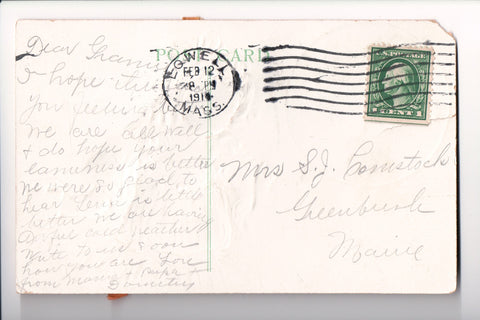 Dear Gram
POST CARD
I hope this
you feeling
we are all well
& do hope your
lameness is better
we were so glad to
hear Lena is little
better we are having
cold weather
write to us soon
how you are Love
from Mama & Papa &
Dorothy
LOWELL
FEB 12
8 PM
191
MASS.
U.S. POSTAGE
CENT
Mrs S. J. Comstock
Greenbush
Maine